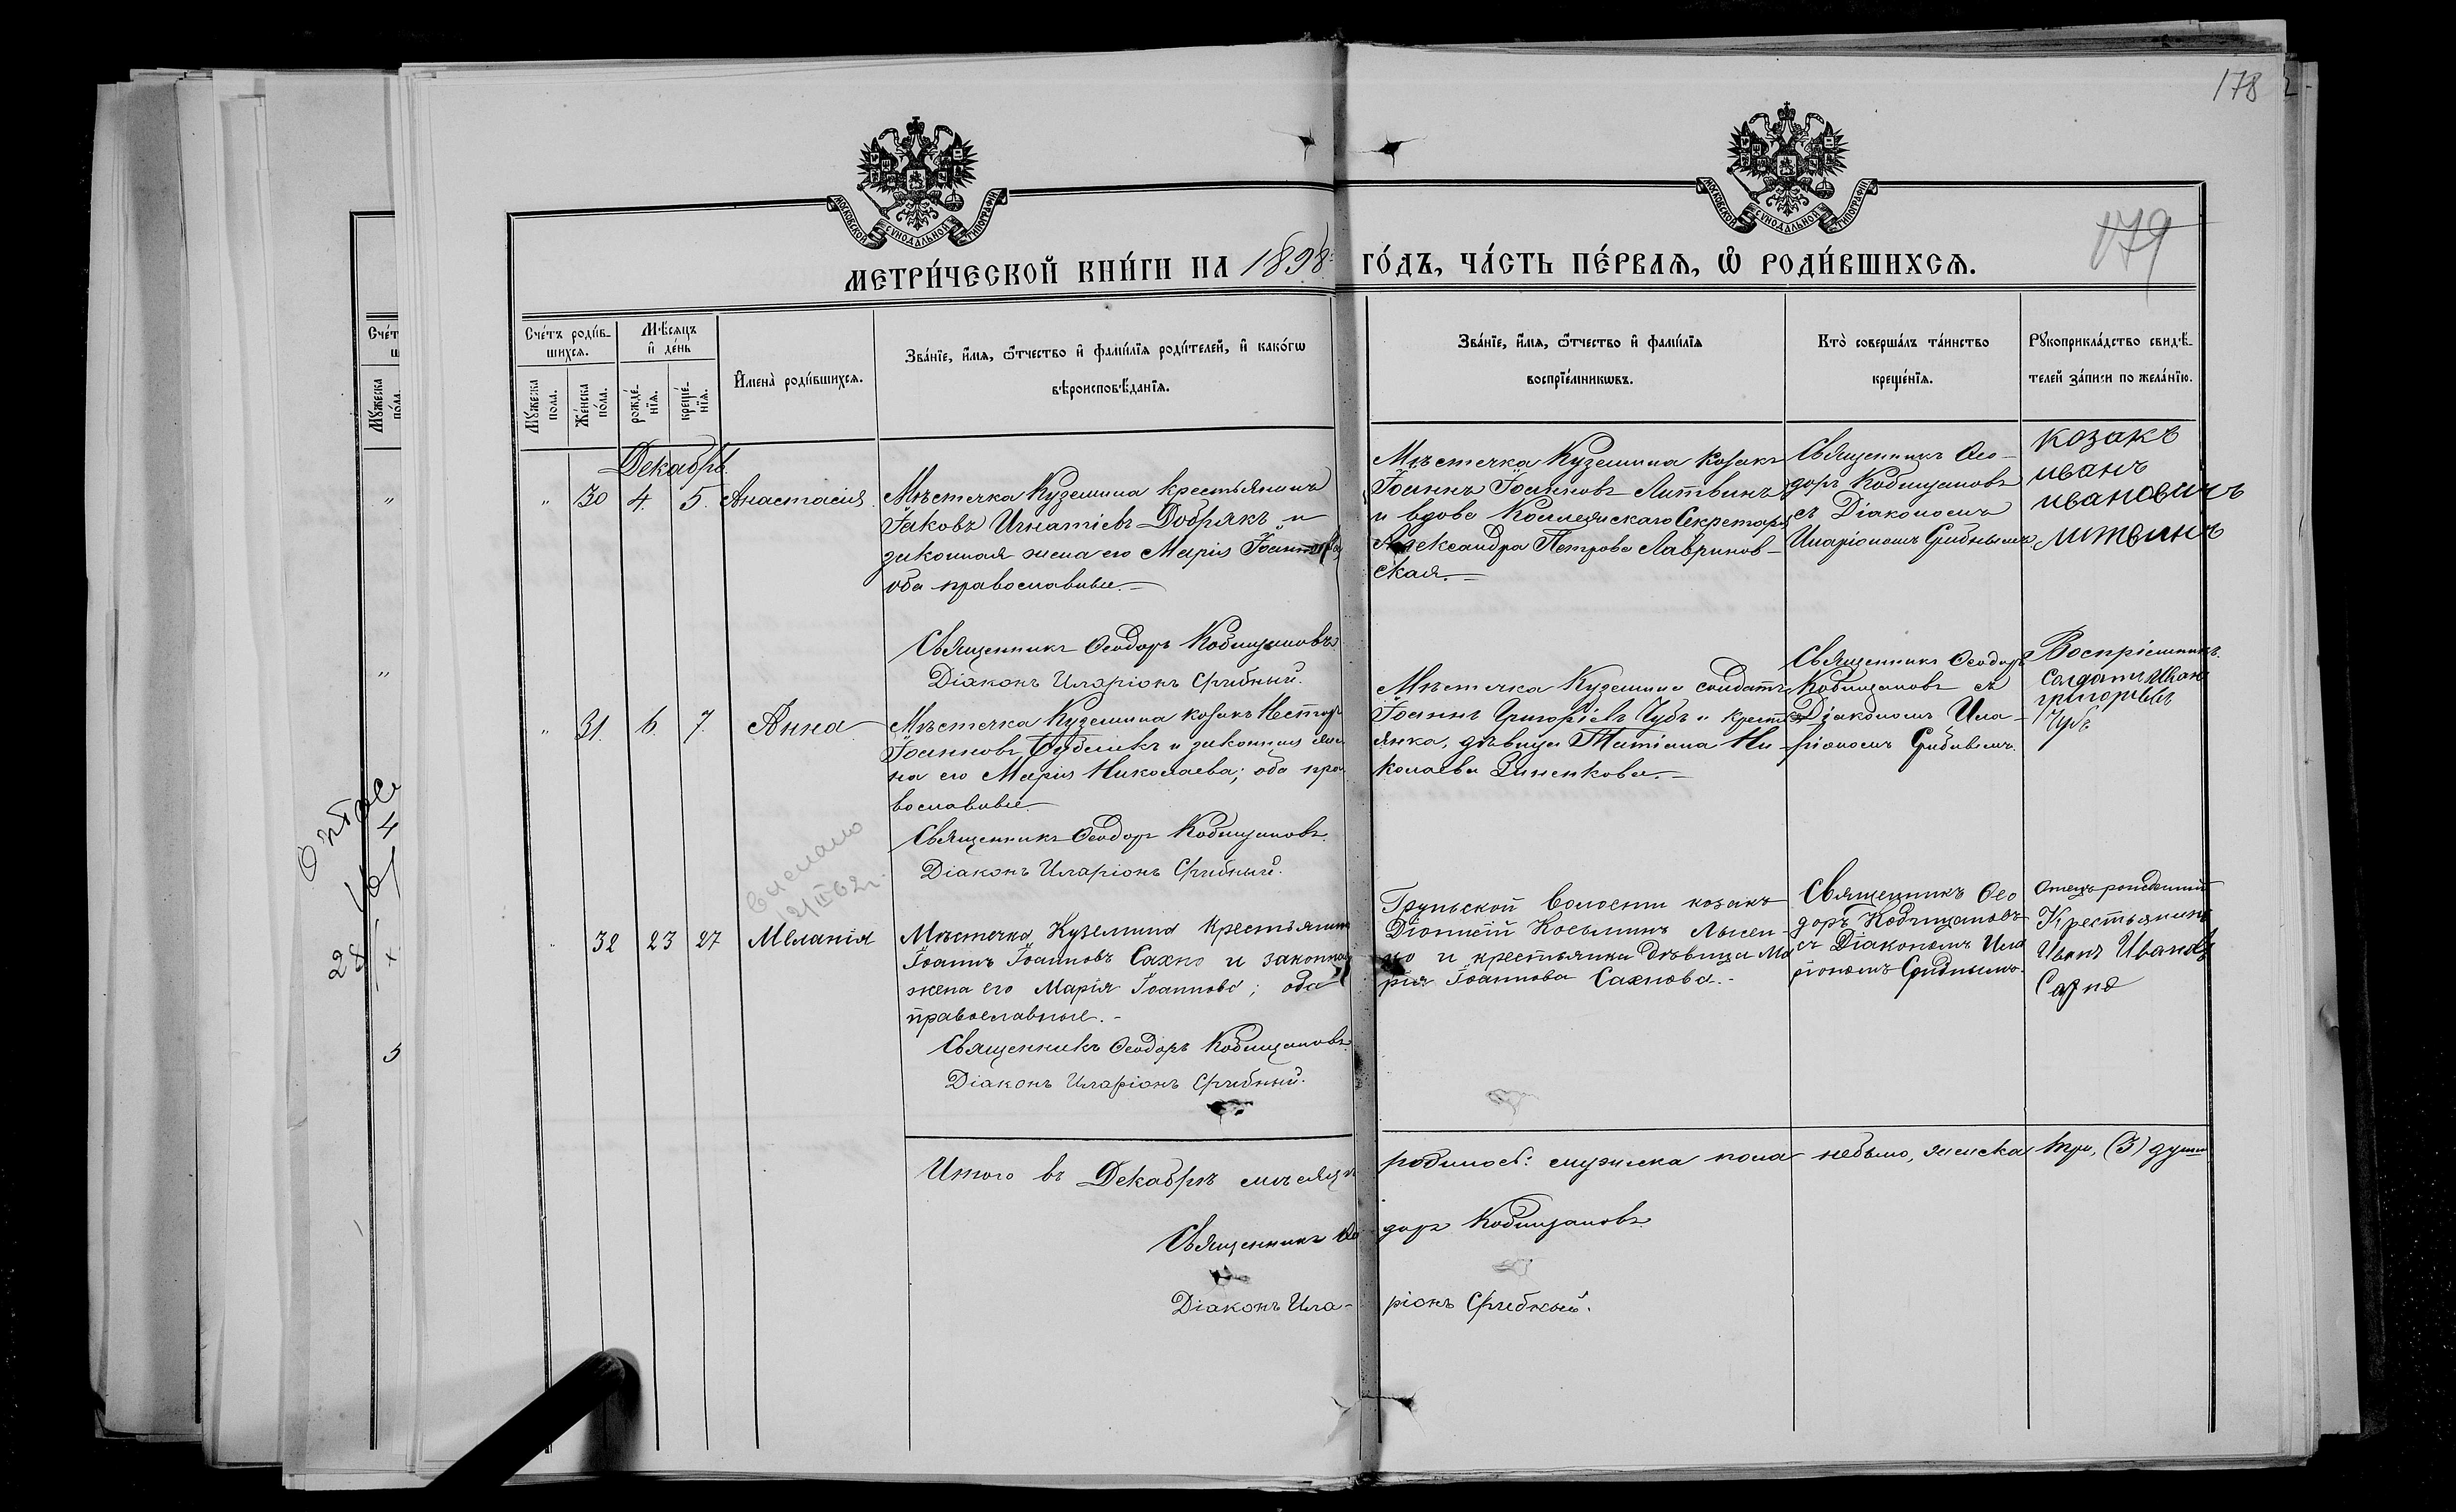 178
179
МОСКОВСКОЙ СѴНОДАЛЬНОЙ ТИПОГРАФІИ
МОСКОВСКОЙ СѴНОДАЛЬНОЙ ТИПОГРАФІИ
МЕТРИ́ЧЕСКОЙ КНИ́ГИ НА 1898 ГО́ДЪ, ЧА́СТЬ ПЕ́РВАѦ, Ѽ РОДИ́ВШИХСѦ.
Сче́тъ роди́в-
шихсѧ.
Мꙋжеска
пола.
Же́нска
по́ла.
Мѣ́сѧцъ
и҆ де́нь
рожде́-
нїѧ.
креще́-
нїѧ.
И҆мена̀ роди́вшихсѧ.
Зва́нїе, и҆́мѧ, ѻ҆́тчество и҆ фамѝлїѧ роди́телей, и҆ како́гѡ
вѣроисповѣ́данїѧ.
Зва́нїе, и҆́мѧ, ѻ҆́тчество и҆ фамѝлїѧ
воспрїе́мникѡвъ.
Кто̀ соверша́лъ та́инство
креще́нїѧ.
Рꙋкоприкла́дство свидѣ́-
телей за́писи по жела́нїю.
Декабрь
" 30 4. 5. Анастасія.
Мѣстечка Куземина крестьянинъ
Іаковъ Игнатіевъ Добрякъ и
законная жена его Марія Іоаннова
оба православные.—
Священникъ Ѳеодоръ Кобищановъ
Діаконъ Иларіонъ Срибный.
Мѣстечка Куземина козакъ
Іоаннъ Іоанновъ Литвинъ
и вдова Коллежскаго Секретаря
Александра Петрова Лавринов-
ская.—
Священникъ Ѳео-
доръ Кобищановъ
съ Діакономъ
Иларіономъ Срибнымъ
козакъ
иванъ
ивановичъ
литвинъ
" 31. 6. 7. Анна
Мѣстечка Куземина козакъ Нестор
Іоанновъ Бубликъ и законная же
на его Марія Николаева; оба пра
вославные
Священникъ Ѳеодоръ Кобищановъ.
Діаконъ Иларіонъ Срибный.
Мѣстечка Куземина солдатъ
Іоаннъ Григоріевъ Чубъ и кресть
янка, дѣвица Татіана Ни-
колаева Зиненкова.—
Священникъ Ѳеодоръ
Кобищановъ съ
Діакономъ Ила-
ріономъ Срибнымъ.
Воспріемникъ.
Солдатъ Иван
григорьевъ
Чубъ
Выслано
12/II 62 г.
" 32 23 27 Меланія
Мѣстечка Куземина крестьянинъ
Іоаннъ Іоанновъ Сахно и законная
жена его Марія Іоаннова; оба
православные.-
Священникъ Ѳеодоръ Кобищановъ.
Діаконъ Иларіонъ Срибный.
Грунской волости козакъ
Діонисій Косьминъ Лысен-
ко и крестьянка дѣвица Ма
рія Іоаннова Сахнова.-
Священникъ Ѳео
доръ Кобищановъ
съ Діакономъ Ила
ріономъ Срибнымъ.
Крестьянинъ
Иванъ Ивановъ
Сахно
Итого въ Декабрѣ мѣсяцѣ родилось: мужеска пола небыло, женска три, (3) души
Священникъ Ѳео доръ Кобищановъ.
Діаконъ Ила- ріонъ Срибный.